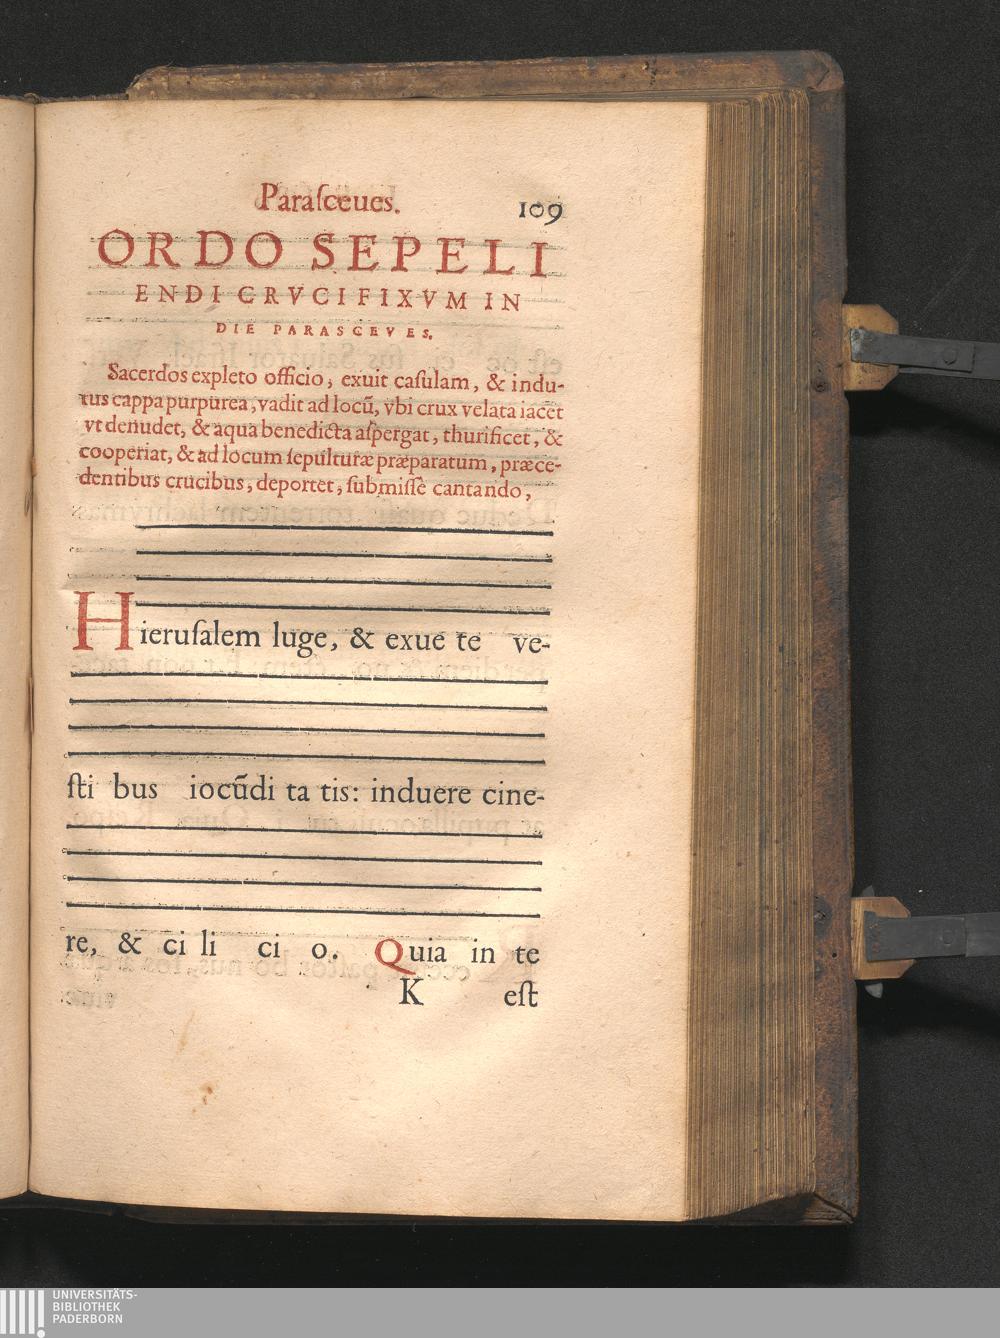 Paraſceues.
109
ORDO SEPELI
ENDI CRVCIFIXVM IN
DIE PARASCEVES.
Sacerdos expleto officio, exuit caſulam, & indu-
tus cappa purpurea, vadit ad locū, vbi crux velata iacet
vt denudet, & aqua benedicta aſpergat, thurificet, &
cooperiat, & ad locum ſepulturæ præparatum, præce-
dentibus crucibus, deportet, ſubmiſſè cantando,
Hieruſalem luge, & exue te ve-
ſti bus iocūdi ta tis: induere cine-
re, & ci li ci o. Quia in te
K eſt
UNIVERSITÄTS-
BIBLIOTHEK
PADERBORN